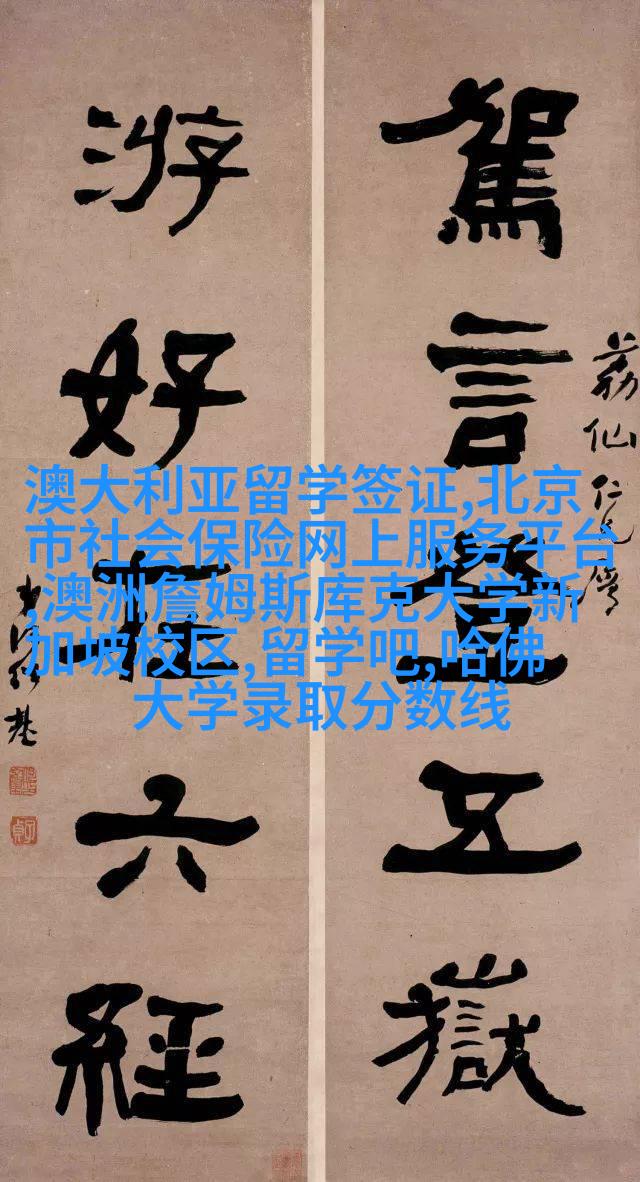 駕言登五嶽
荔仙仁兄屬
游好在六經
何紹基
子貞
澳大利亚留学签证,北京
市社会保险网上服务平台
,澳洲詹姆斯库克大学新
加坡校区,留学吧,哈佛
大学录取分数线